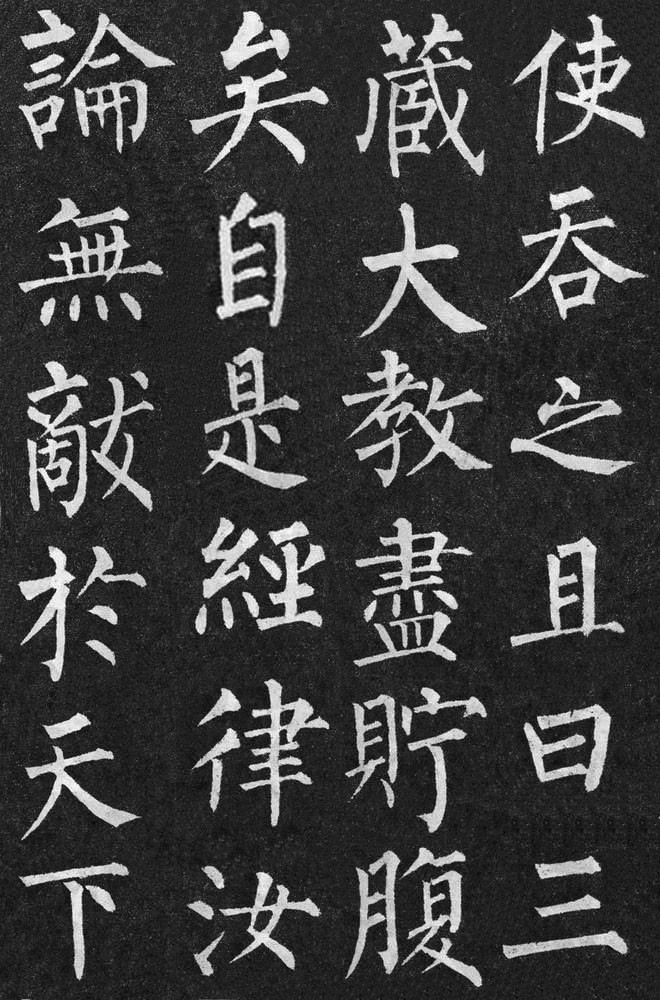 使吞之且曰三
藏大教盡貯腹
矣自是經律汝
論無敵於天下